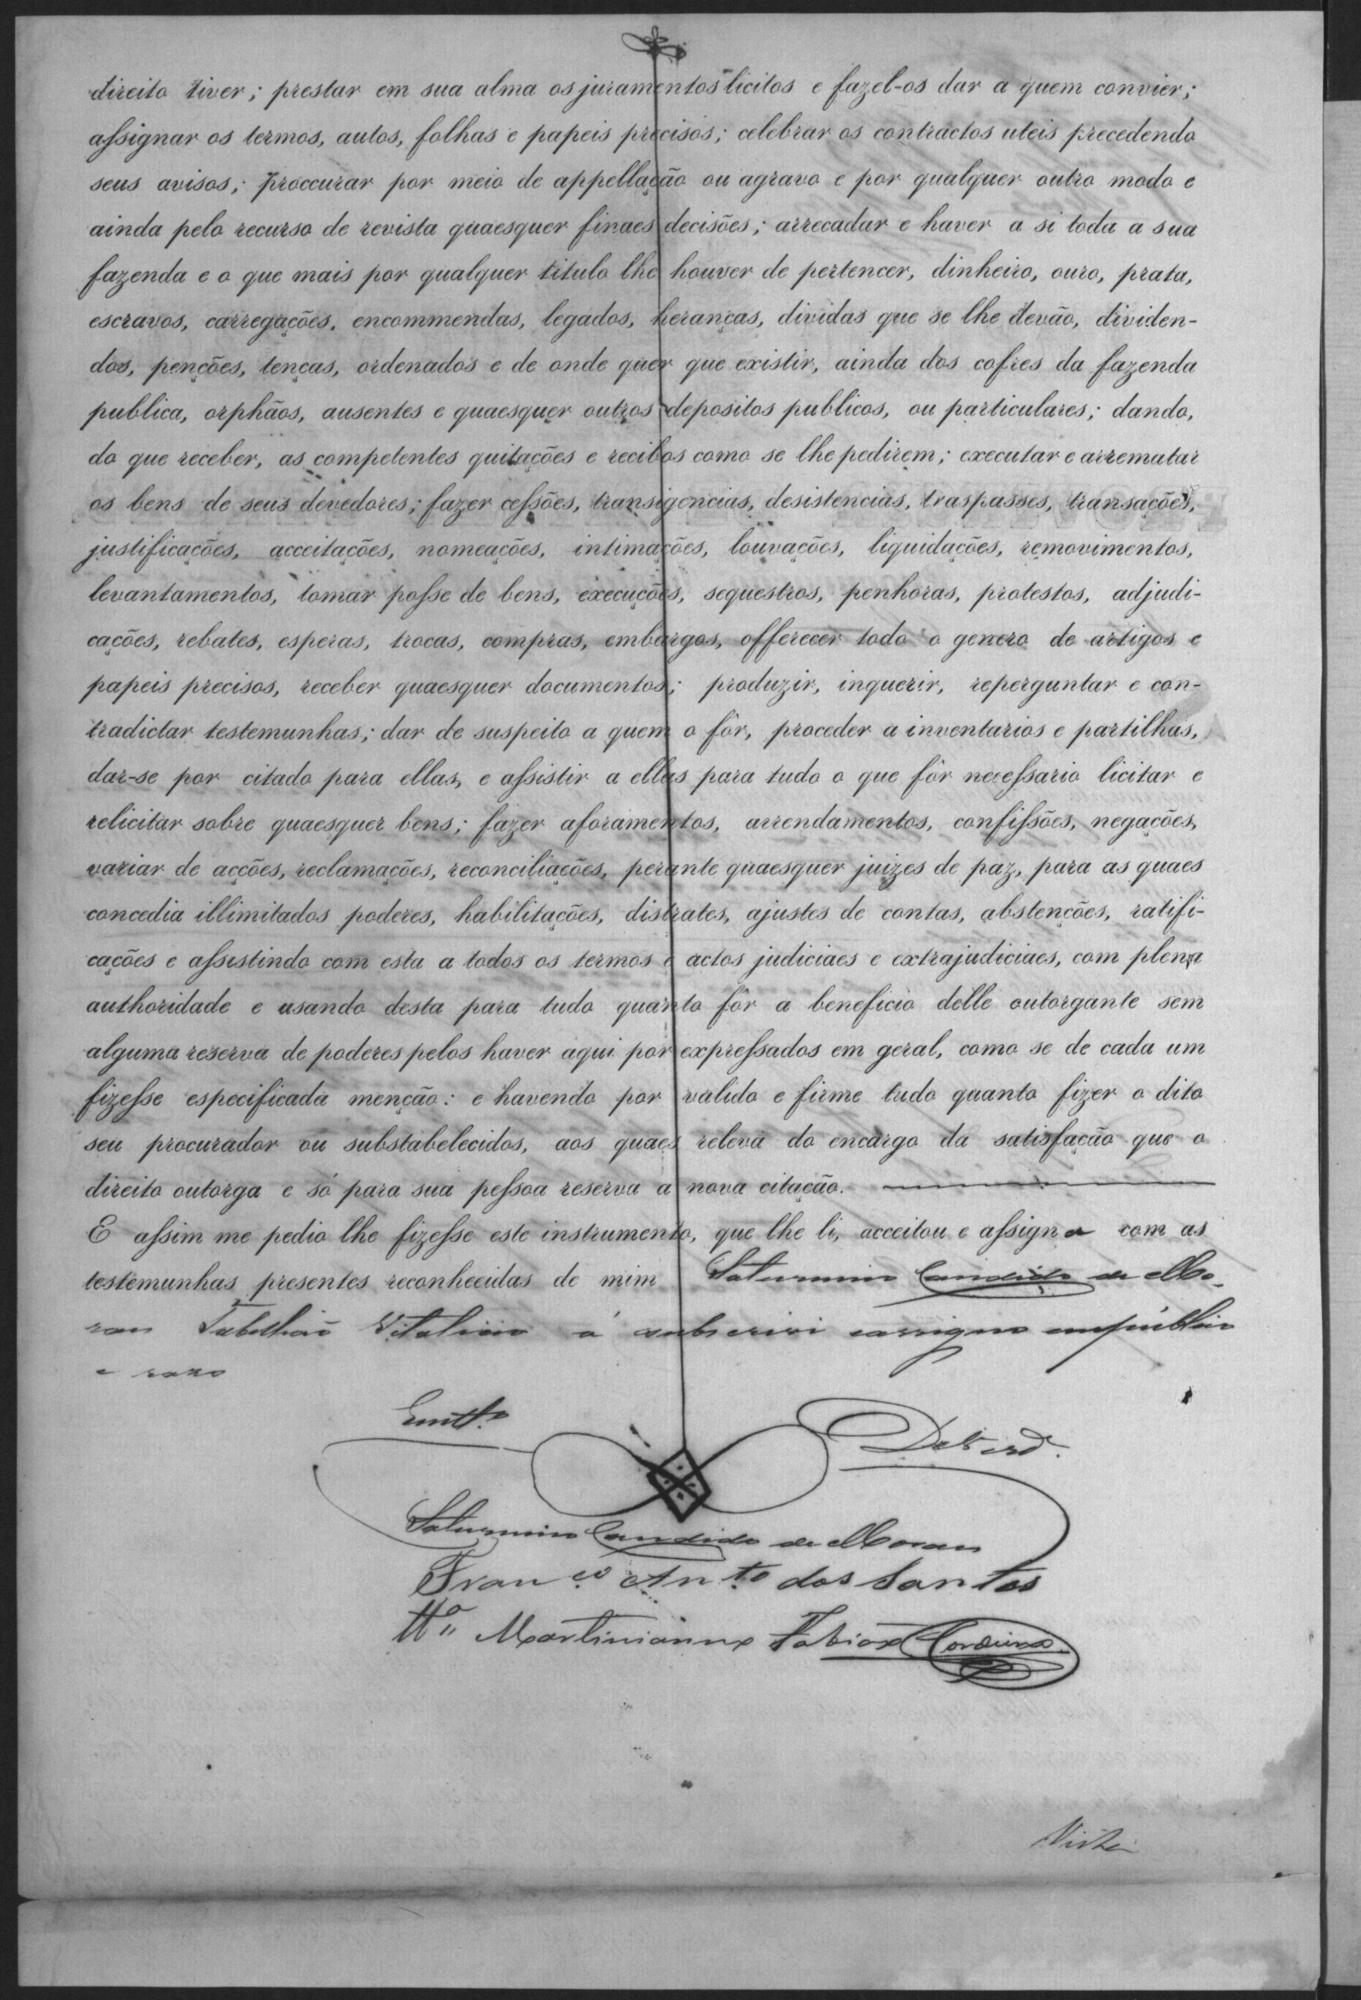 direito tiver; prestar em sua alma os juramentos licitos e fazel-os dar a quem convier;
assignar os termos, autos, folhas e papeis precisos; celebrar os contractos uteis precedendo
seus avisos; proccurar por meio de appellação ou agravo e por qualquer outro modo e
ainda pelo recurso de revista quaesquer finaes decisões; arrecadar e haver a si toda a sua
fazenda e o que mais por qualquer titulo lhe houver de pertencer, dinheiro, ouro, prata,
escravos, carregações, encommendas, legados, heranças, dividas que se lhe devão, dividen-
dos, penções, tenças, ordenados e de onde quer que existir, ainda dos cofres da fazenda
publica, orphãos, ausentes e quaesquer outros depositos publicos, ou particulares; dando,
do que receber, as competentes quitações e recibos como se lhe pedirem; executar e arrematar
os bens de seus devedores; fazer cessões, transigencias, desistencias, traspasses, transações,
justificações, acceitações, nomeações, intimações, louvações, liquidações, removimentos,
levantamentos, tomar posse de bens, execuções, sequestros, penhoras, protestos, adjudi-
cações, rebates, esperas, trocas, compras, embargos, offerecer todo o genero de artigos e
papeis precisos, receber quaesquer documentos; produzir, inquerir, reperguntar e con-
tradictar testemunhas; dar de suspeito a quem o fôr, proceder a inventarios e partilhas,
dar-se por citado para ellas, e assistir a ellas para tudo o que fôr necessario licitar e
relicitar sobre quaesquer bens; fazer aforamentos, arrendamentos, confissões, negações,
variar de acções, reclamações, reconciliações, perante quaesquer juizes de paz, para as quaes
concedia illimitados poderes, habilitações, distrates, ajustes de contas, abstenções, ratifi-
cações e assistindo com esta a todos os termos e actos judiciaes e extrajudiciaes, com plena
authoridade e usando desta para tudo quanto fôr a beneficio delle outorgante sem
alguma reserva de poderes pelos haver aqui por expressados em geral, como se de cada um
fizesse especificada menção: e havendo por valido e firme tudo quanto fizer o dito
seu procurador ou substabelecidos, aos quaes releva do encargo da satisfação que o
direito outorga e só para sua pessoa reserva a nova citação.
E assim me pedio lhe fizesse este instrumento, que lhe li, acceitou e assigna com as
testemunhas presentes reconhecidas de mim Saturnino Candido de Mo-
raes Tabelliaõ Vitalicio o subscrivi e assigno em publico
e raso
Em tto
Saturnino Candido de Moraes
Franco Anto dos Santos
Martinianno Fabiao Cordeiro